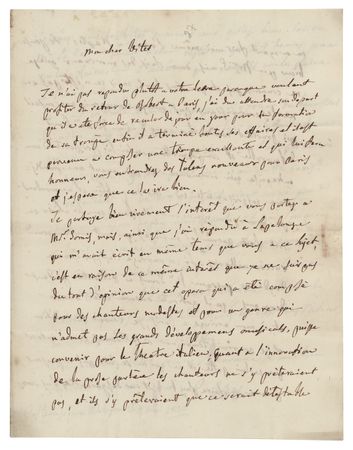 mon cher Vitet
Je n'ai pas repondu plutôt a votre lettre parceque voulant
profiter du retour de Robert a Paris, j'ai du attendre son depart
qu'il a été forcé de reculer de jour en jour pour la formation
de sa troupe enfin il a terminé toutes ses affaires et il est
parvenu a completer une troupe excellente et qui lui fera
honneur, vous entendrez des talens nouveaux pour Paris
et j'espere que ce la ira bien.
Je partage bien vivement l'interêt que vous portez a
Mr. Donis, mais, ainsi que j'ai repondu à Lapelouze
qui m'avait écrit en même tems que vous a ce sujet
c'est en raison de ce même interêt que je ne suis pas
du tout d'opinion que cet opera qui a été composé
pour des chanteurs modestes et pour un genre qui
n'admet pas les grands développemens musicals, puisse
convenir pour le theatre italien. Quant à l'innovation
de la prose parlée les chanteurs ne s'y prêteraient
pas, et ils s'y prêteraient que ce serait détestable